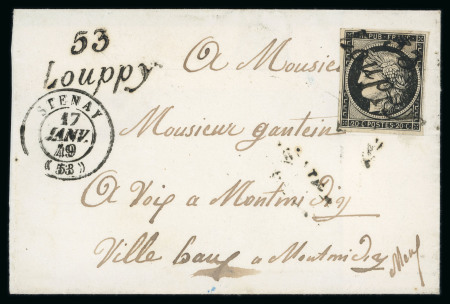 53
Louppy
STENAY
17
JANV.
49
(53)
REPUB. FRANC.
20 C. POSTES 20 C.
A Monsieu
Monsieur gantein
A Voix a Montmidy
Ville haux a Montmidy
Meus